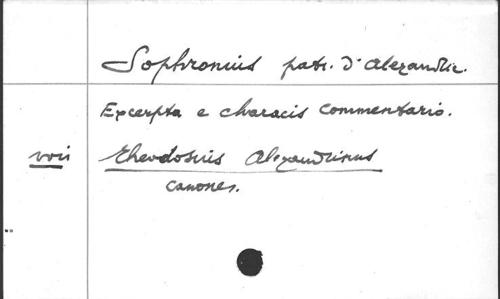 Sophronius patr. d'Alexandrie.
Excerpta e characis commentario.
voir Theodosius Alexandrinus
canones.